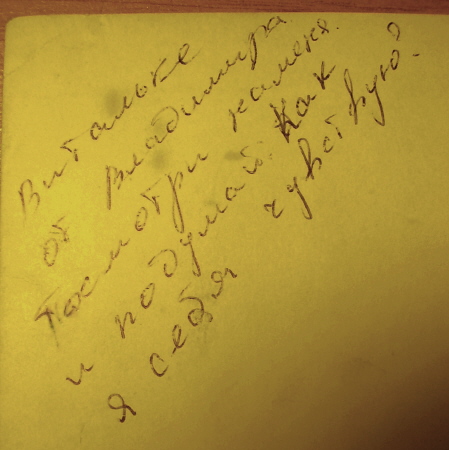 Витальке
от Владимира.
Посмотри на меня.
и подумай: Как
я себя чувствую?